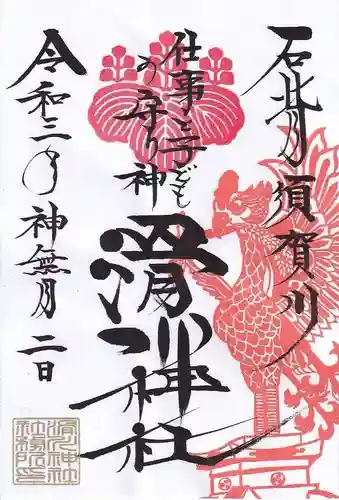 石背 須賀川
仕事と子ども
の守り神
滑川神社
令和三年 神無月 二日
滑川神社
社務所印